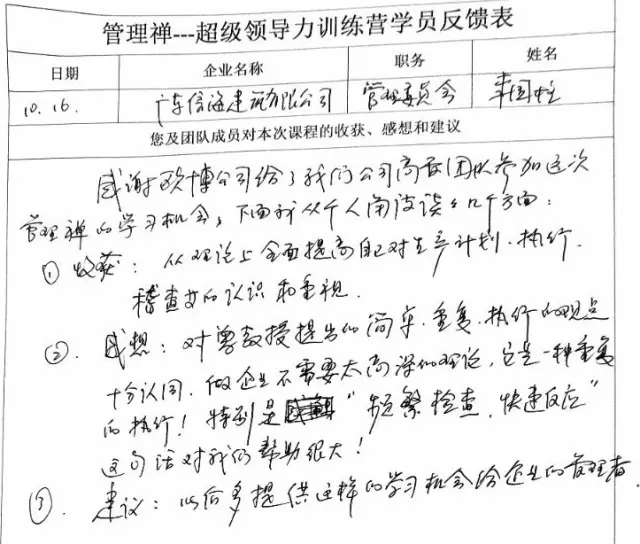 管理禅---超级领导力训练营学员反馈表
日期 企业名称 职务 姓名
10.16. 广东信海建筑有限公司 管理委员会 国柱
您及团队成员对本次课程的收获、感想和建议
感谢欧博公司给了我们公司高管团队参加这次
管理禅的学习机会，下面我从个人角度谈几个方面：
① 收获：从理论上全面提高自己对生产计划、执行、
稽查的认识和重视.
②. 感想：对曾教授提出的简单、重复、执行的观点
十分认同，做企业不需要太高深的理论，它是一种重复
的执行！特别是“频繁检查，快速反应”
这句话对我们帮助很大！
③. 建议：以后多提供这样的学习机会给企业的管理者.